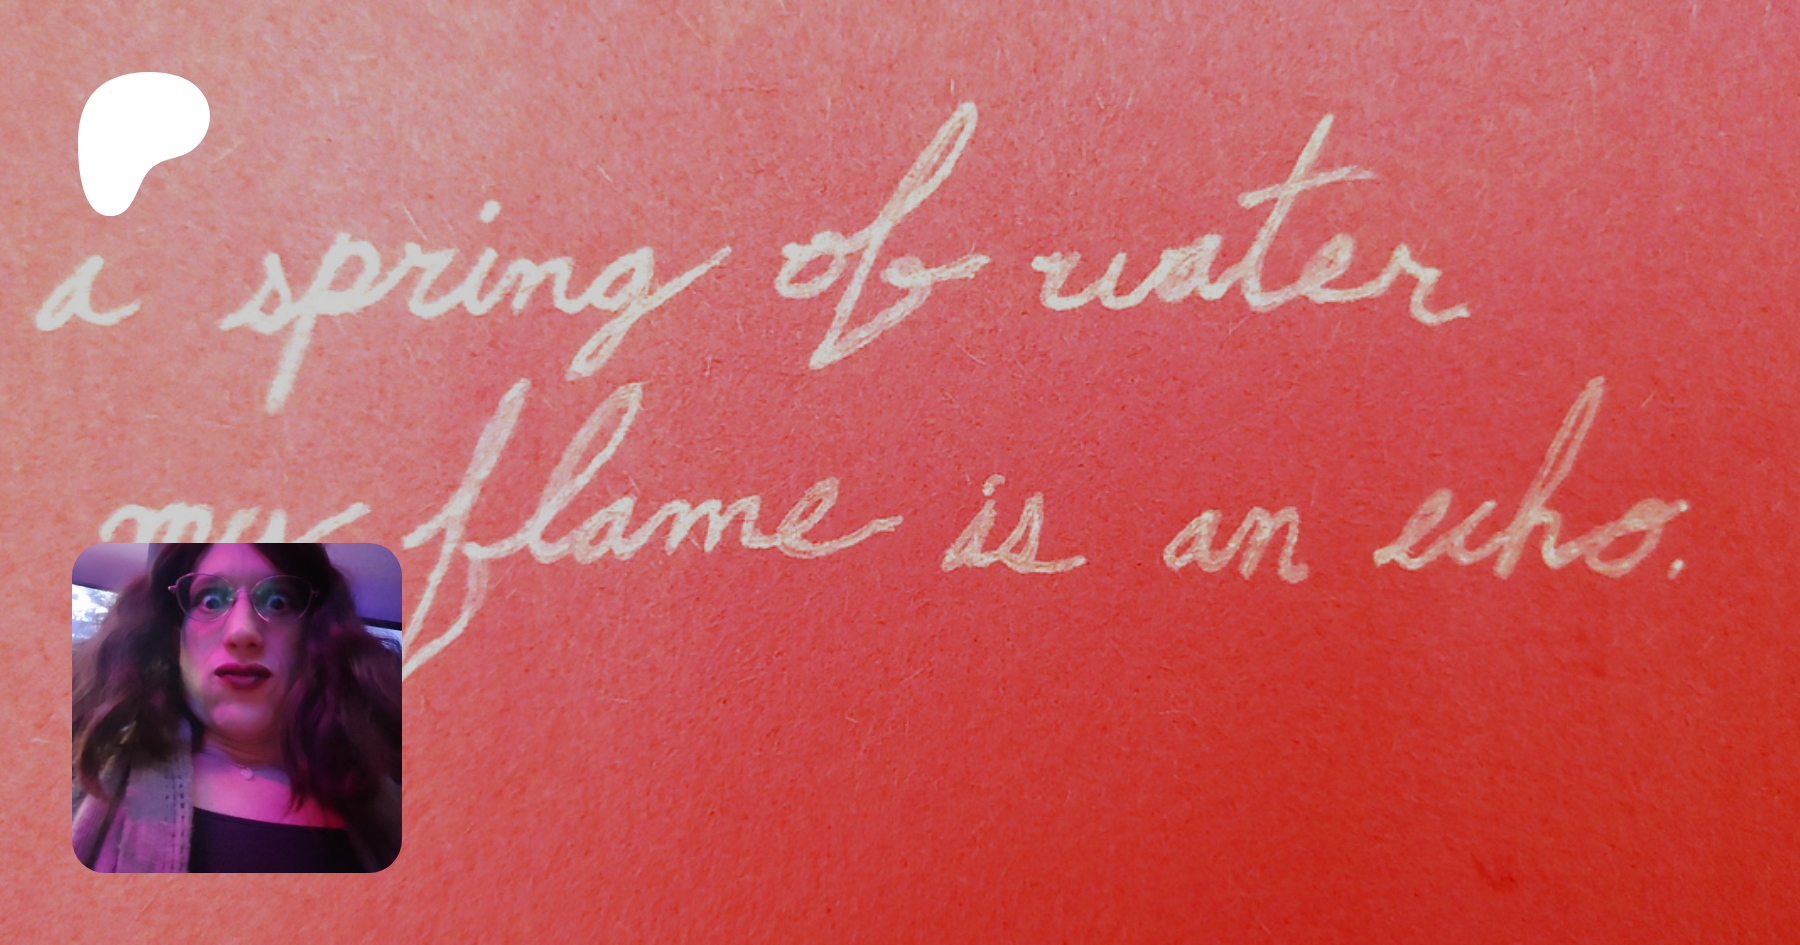 a spring of water
my flame is an echo.